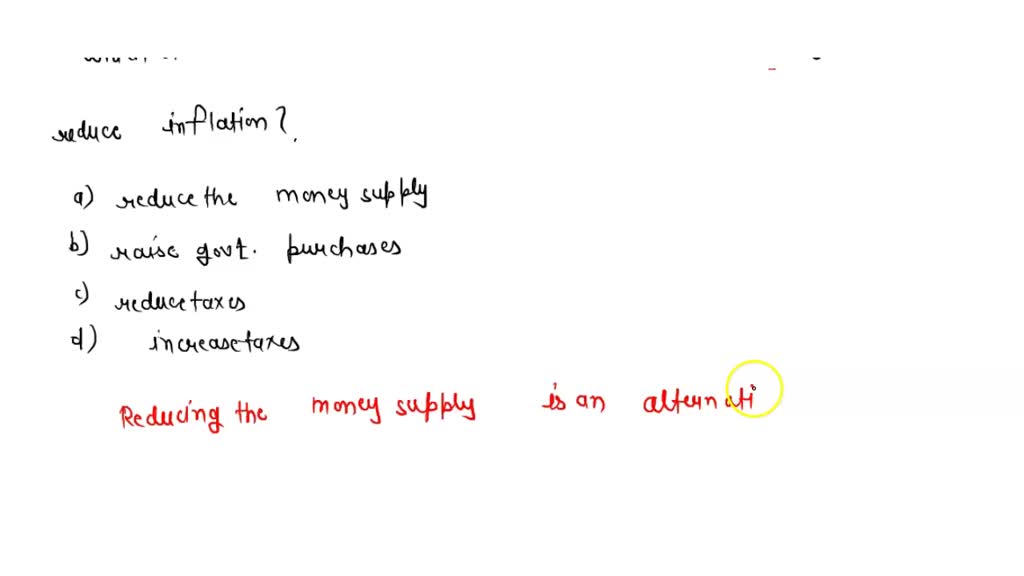 reduce inflation?
a) reduce the money supply
b) raise govt. purchases
c) reduce taxes
d) increase taxes
Reducing the money supply is an alternati